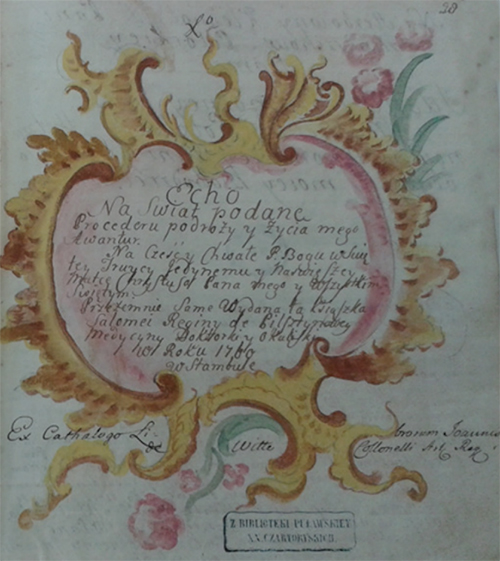 38
Echo
Na Swiat podane
Procederu podroży y Zycia mego
Awantur.
Na Cześć y Chwałę P. Bogu w Swię
tey Troycy Jedynemu y Najświętszey
Matce Chrystusa Pana mego y Wszystkim
Swiętym.
Przezemnie Same Wydana ta Ksiąszka
Salomei Reginy de Pilsztynowey
Medycyny Doktorki y Okulistki
w Roku 1760
w Stambule
Ex Cathalogo Li-
de Witte
Z BIBLIOTEKI PUŁAWSKIEY
XX. CZARTORYSKICH.